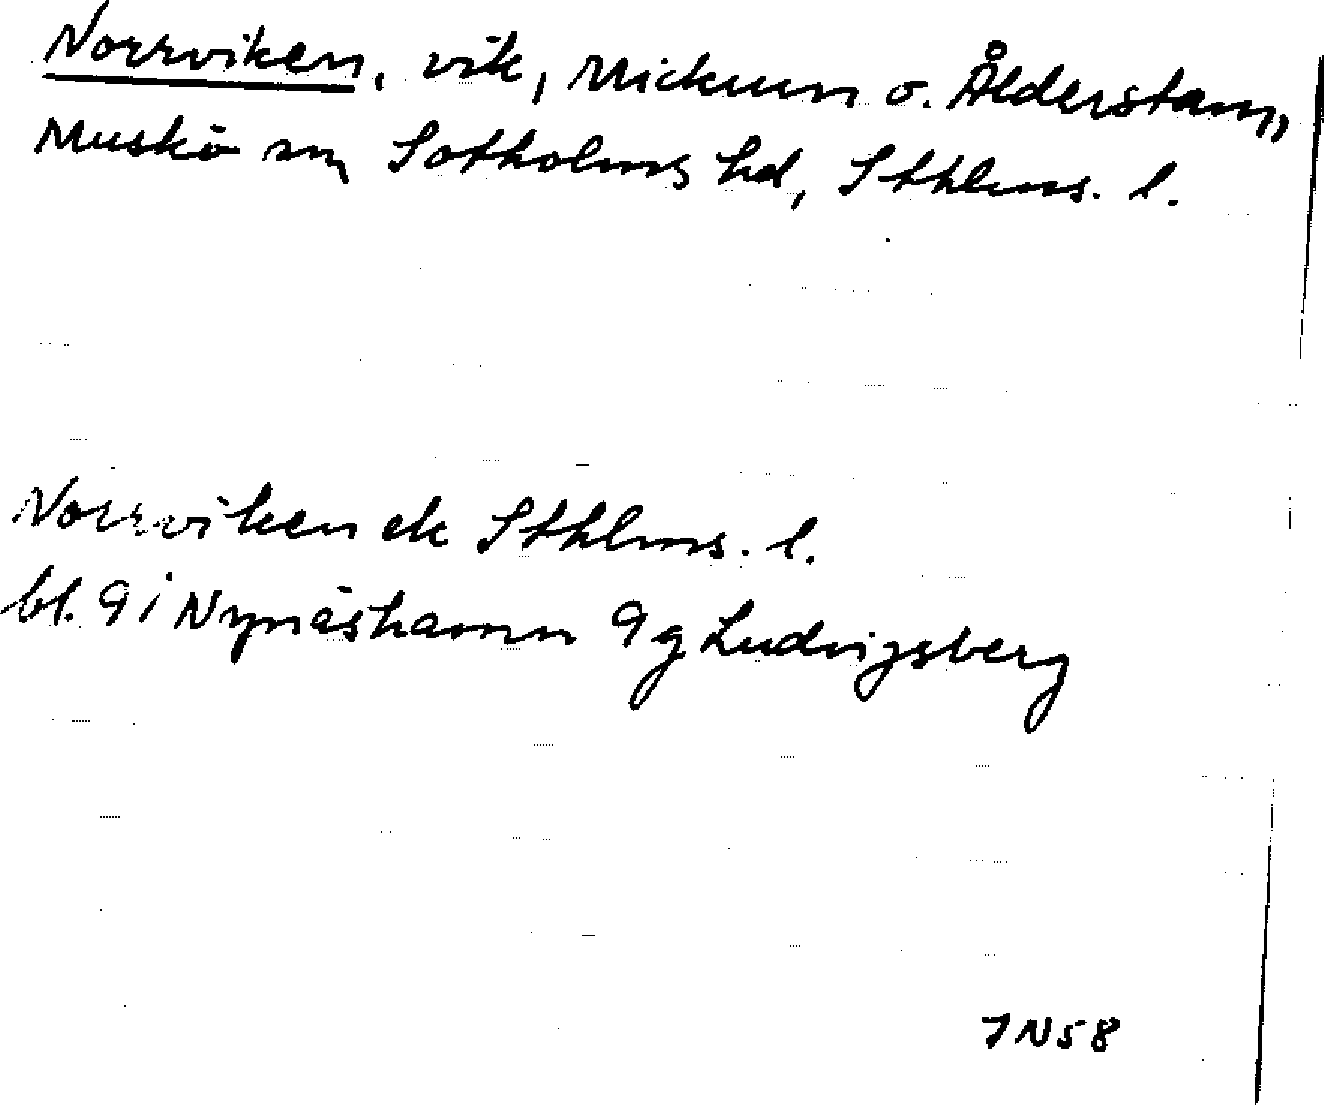 Norrviken, vik, Mickum o. Ålderstam,
Muskö sn Sotholms hd, Sthlms. l.
Norrviken ek Sthlms. l.
bl. 9 i Nynäshamn 9g Ludvigsberg
JN58